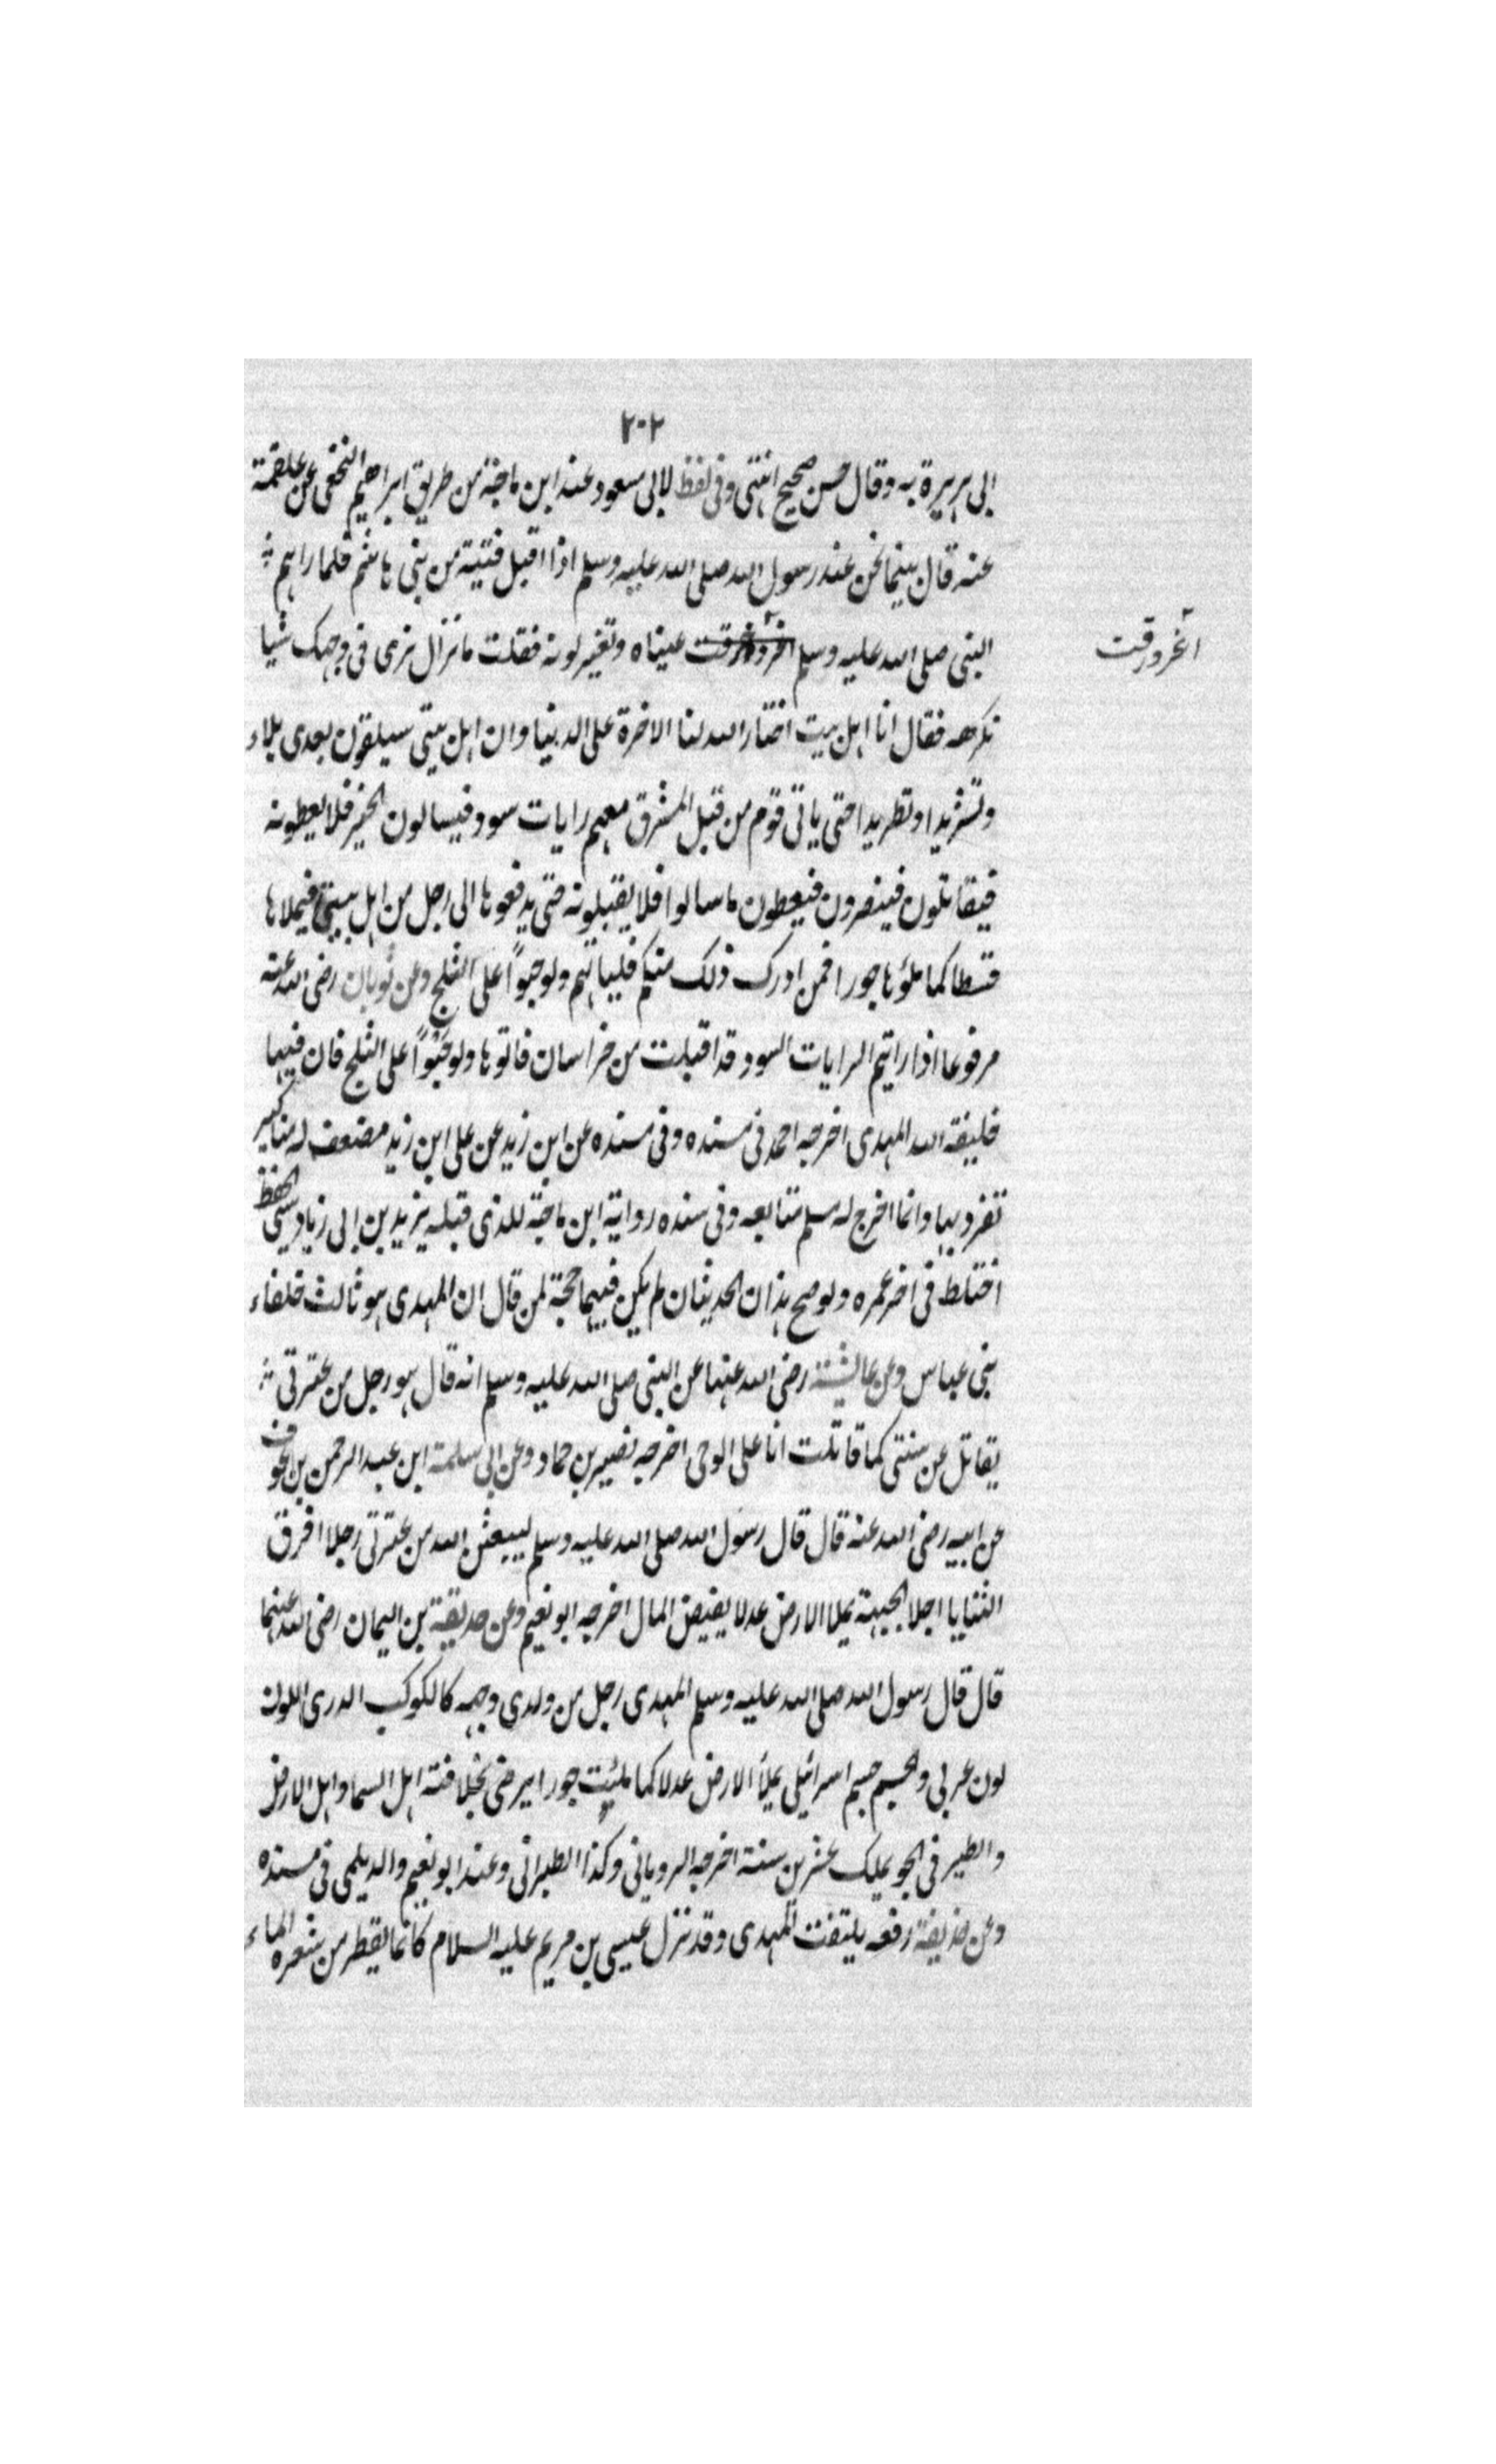 ٢٠٢
ابى هريرة به وقال حسن صحيح انتهى وفى لفظ لابى مسعود عند ابن ماجة من طريق ابراهيم النخعى عن علقمة
عنه قال بينما نحن عند رسول الله صلى الله عليه وسلم اذا اقبل فتية من بنى هاشم فلما راهم
النبى صلى الله عليه وسلم عيناه وتغير لونه فقلت ما نزال نرى فى وجهك شيا
اغرورقت
نكرهه فقال انا اهل بيت اختار الله لنا الاخرة على الدنيا وان اهل بيتى سيلقون بعدى بلاء
وتشريدا وتطريدا حتى ياتى قوم من قبل المشرق معهم رايات سود فيسالون الخير فلا يعطونه
فيقاتلون فينصرون فيعطون ما سالوا فلا يقبلونه حتى يدفعوها الى رجل من اهل بيتى فيملاها
قسطا كما ملؤها جورا فمن ادرك ذلك منكم فلياتهم ولو حبوًا على الثلج وعن ثوبان رضى الله عنه
مرفوعا اذا رايتم الرايات السود قد اقبلت من خراسان فاتوها ولو حبْوًا على الثلج فان فيها
خليفة الله المهدى اخرجه احمد فى مسنده وفى سنده عن ابن زيد عن على ابن زيد مضعف له مناكير
تفرد بها وانما اخرج له مسلم متابعه وفى سنده رواية ابن ماجة للذى قبله يزيد بن ابى زياد سىء الحفظ
اختلط فى اخر عمره ولو صح هذان الحديثان لم يكن فيهما حجة لمن قال ان المهدى هو ثالث خلفاء
بنى عباس وعن عائشة رضى الله عنها عن النبى صلى الله عليه وسلم انه قال هو رجل من عترتى
يقاتل عن سنتى كما قاتلت انا على الوحى اخرجه نصير بن حماد وعن ابى سلمة ابن عبد الرحمن بن عوف
عن ابيه رضى الله عنه قال قال رسول الله صلى الله عليه وسلم ليبعثن الله من عترتى رجلا افرق
الثنايا اجلا الجبهة يملا الارض عدلا يفيض المال اخرجه ابو نعيم وعن حذيفة بن اليمان رضى الله عنهما
قال قال رسول الله صلى الله عليه وسلم المهدى رجل من ولدى وجهه كالكوكب الدرى اللون
لون عربى وجسم جسم اسرائلى يملأ الارض عدلا كما ملئت جورا يرضى بخلافته اهل السما واهل الارض
والطير فى الجو يملك عشرين سنة اخرجه الرويانى وكذا الطبرانى وعند ابو نعيم والديلمى فى مسنده
وعن حذيفة رفعه يلتفت المهدى وقد نزل عيسى بن مريم عليه السلام كانما يقطر من شعره الماء